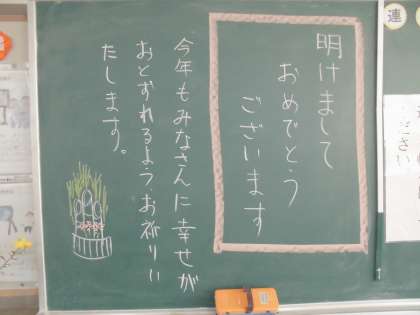 明けまして
おめでとう
ございます
今年もみなさんに幸せが
おとずれるようお祈りい
たします。
連
ください